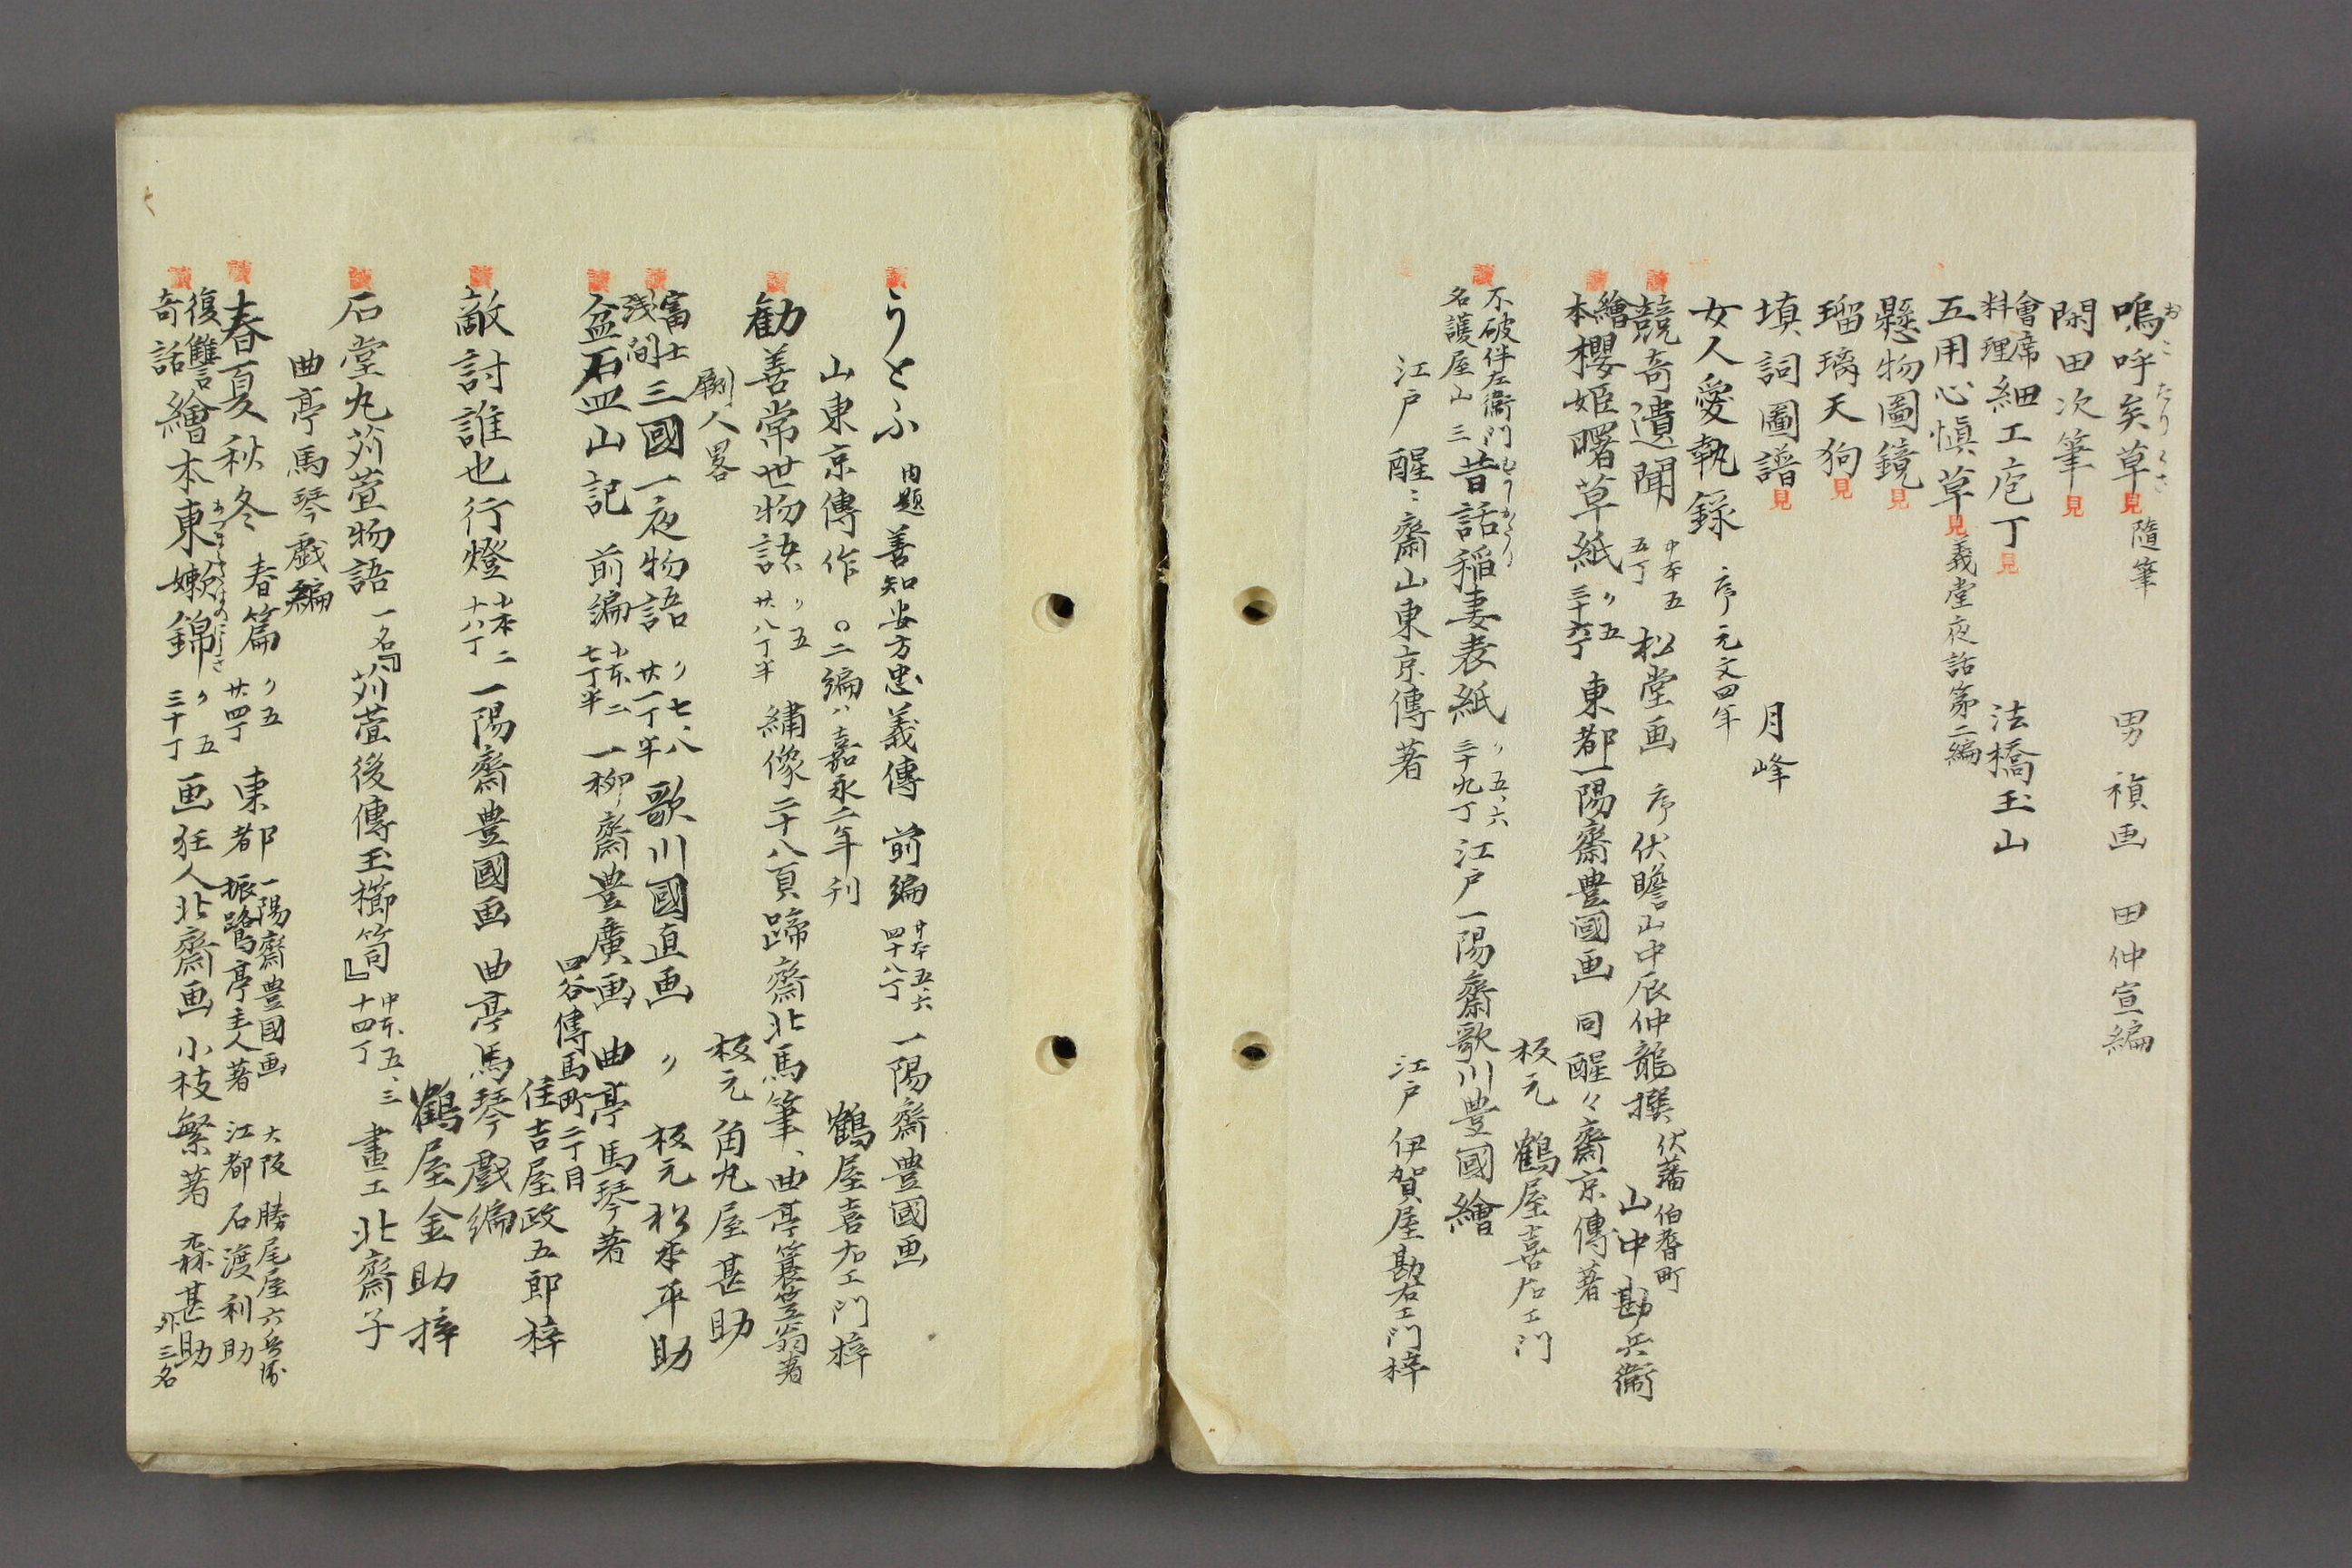 嗚呼矣草 見 隨筆 男 禎画 田仲宣編
おこたりくさ
閑田次筆 見
會席料理 細工庖丁 見 法橋玉山
五用心慎草 見 義堂夜話第二編
懸物圖鏡 見
瑠璃天狗 見
填詞圖譜 見 月峰
女人愛執録 序元文四年
讀 競奇遺聞 中本五 五丁 松堂画 序 伏曕山中辰仲龍撰 伏藩伯耆町 山中勘兵衞
讀 繪本 櫻姫曙草紙 〃五 三十六丁 東都一陽齋豊國画 同醒々齋京傳著
板元 鶴屋喜右エ門
讀 不破伴左衞門 名護屋山三 昔話稲妻表紙 〃五、六 三十九丁 江戸一陽齋歌川豊國繪
むかしがたり
江戸 醒ミ齋山東京傳著 江戸 伊賀屋勘右エ門梓
讀 うとふ 内題 善知安方忠義傳 前編 中本五、六 四十八丁 一陽齋豊國画
山東京傳作 〇二編ハ嘉永二年刊 鶴屋喜右エ門梓
讀 勧善常世物語 〃五 廿八丁半 繍像二十八頁蹄齋北馬筆、曲亭簑笠翁著
劂人畧 板元 角丸屋甚助
讀 富士浅間 三國一夜物語 〃七、八 廿一丁半 歌川國直画 〃 板元 松本平助
讀 盆石皿山記 前編 小本二 七丁半 一柳齋豊廣画 曲亭馬琴著
四谷傳馬町二丁目 住吉屋政五郎梓
讀 敵討誰也行燈 小本二 十八丁 一陽齋豊國画 曲亭馬琴戲編
鶴屋金助梓
讀 石堂丸苅萱物語 一名『苅萱後傳玉櫛笥』 中本五、三 十四丁 畫工北齋子
曲亭馬琴戯編
讀 春夏秋冬 春篇 〃五 廿四丁 東都 一陽齋豊國画 振鷺亭主人著 大阪 勝尾屋六兵衛 江都 石渡利助
讀 復讐奇話 繪本東嫩錦 〃五 三十丁 画狂人北齋画 小枝繁著 森甚助 外三名